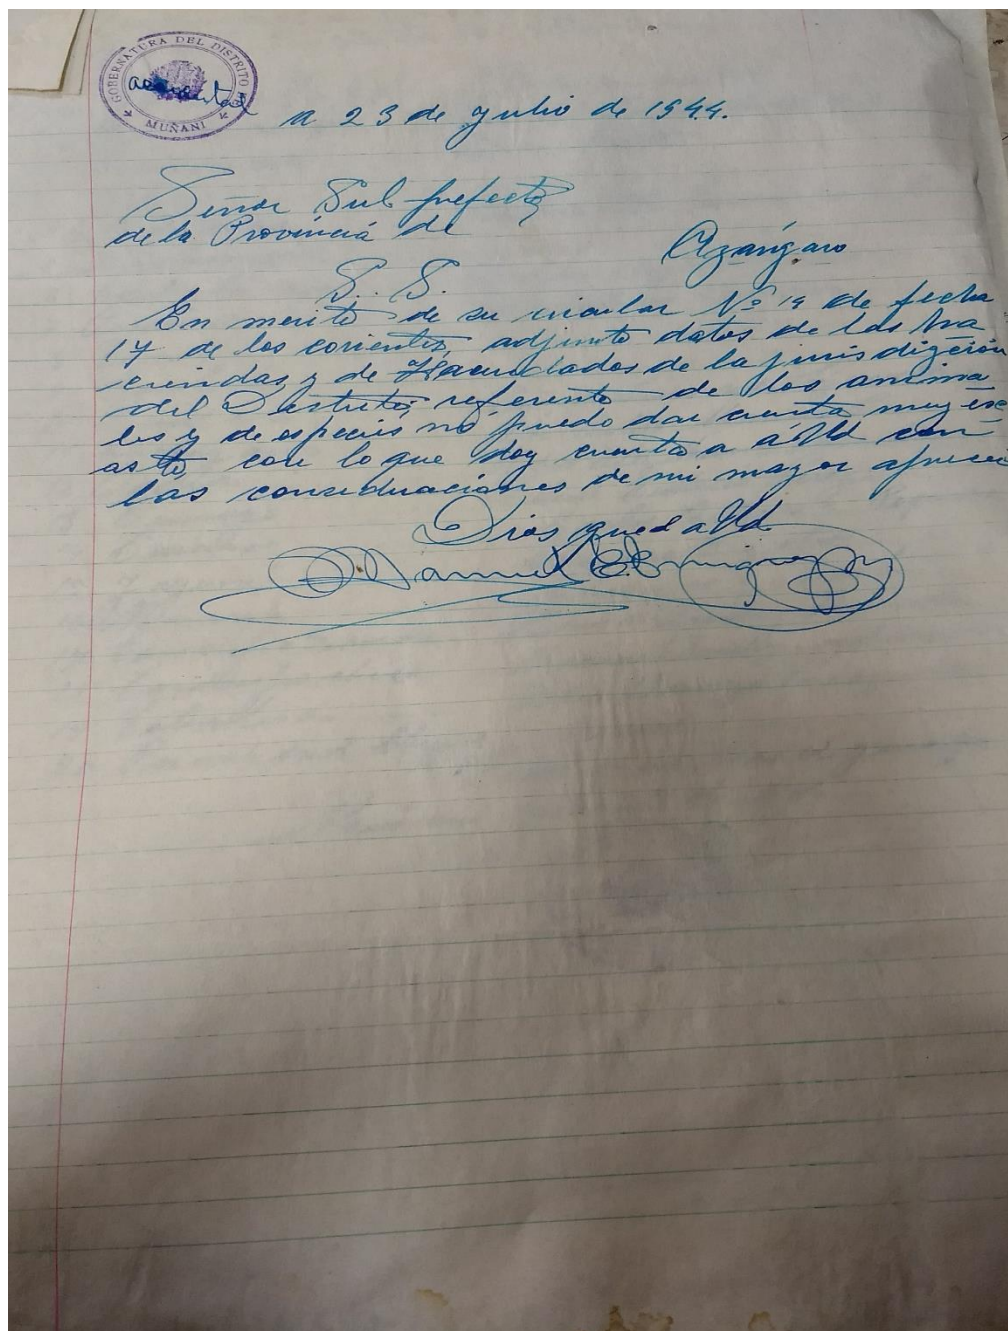 GOBERNATURA DEL DISTRITO
MUÑANI
a 23 de Julio de 1944.
Señor Sub prefecto
de la Provincia de
Azángaro
S. S.
En merito de su circular Nº 19 de fecha
17 de los corientes, adjunto datos de las ha
ciendas y de de la jurisdizción
del Distrito, referente de los anima
les y de especies no puedo dar cuenta muy ex
asto, con lo que doy cuenta a á Ud con
las consideraciones de mi mayor
Dios gued a Ud
Manuel